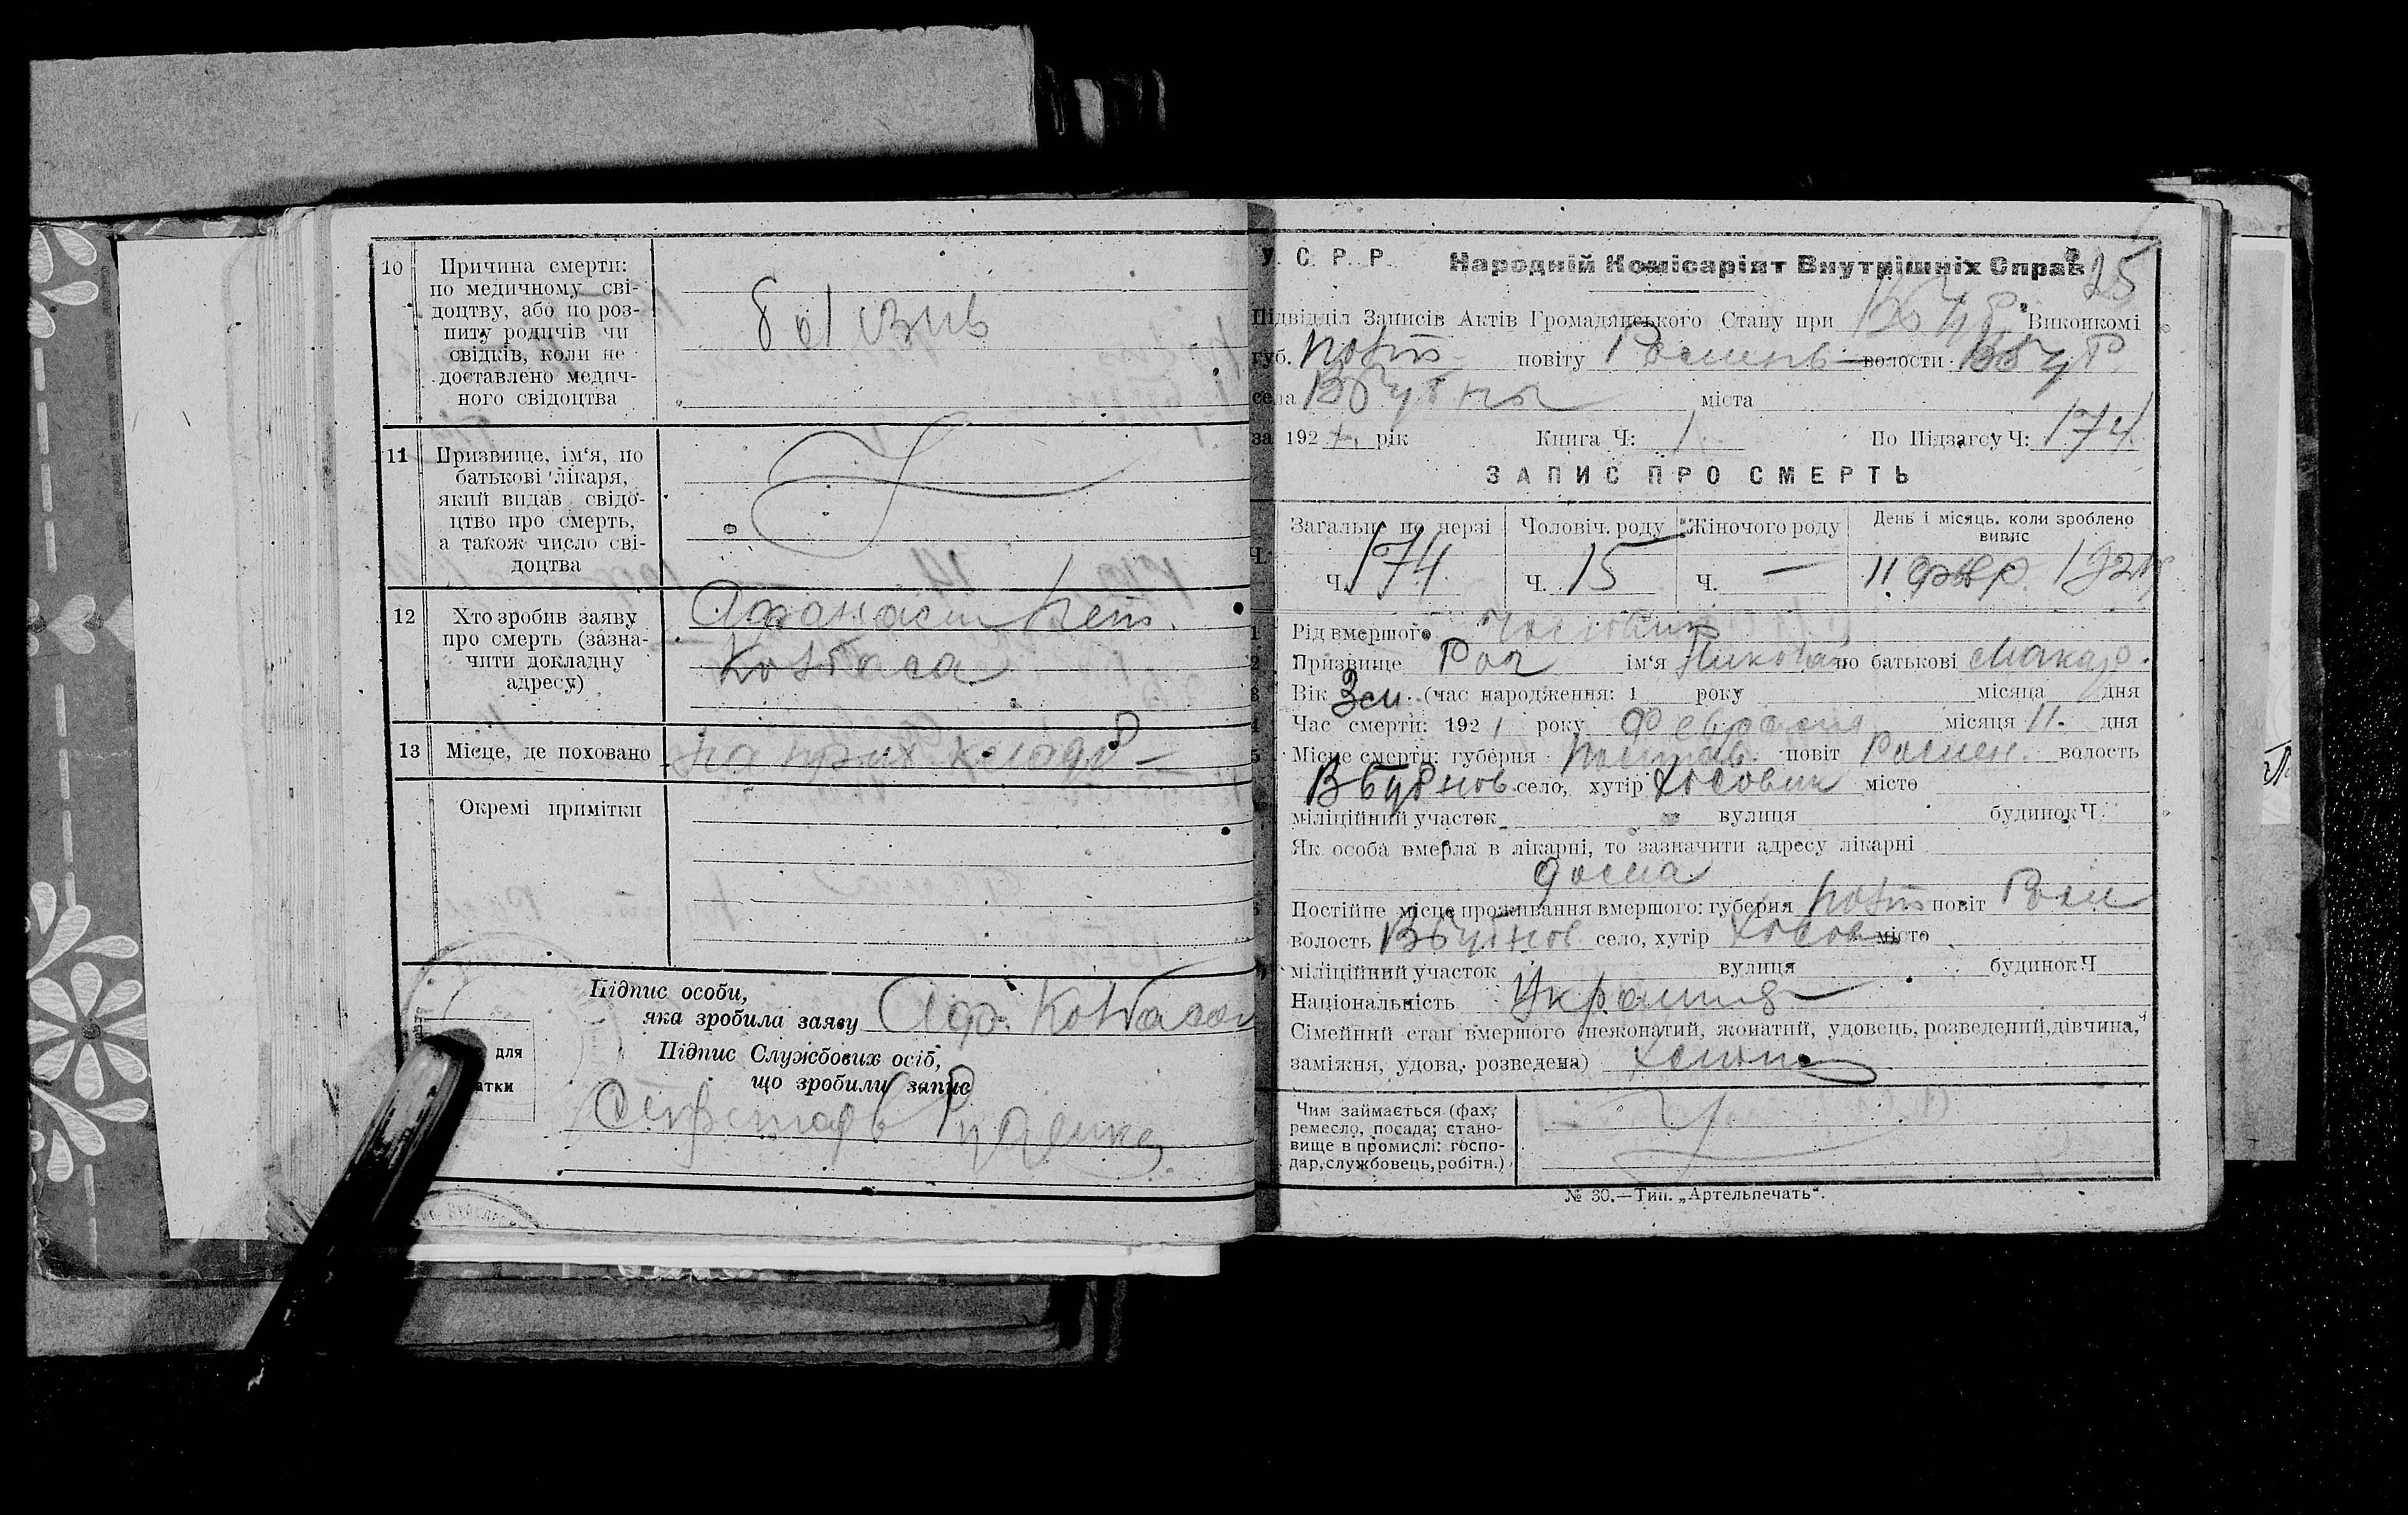 10 Причина смерти:
по медичному сві-
доцтву, або по роз-
питу родичів чи
свідків, коли не
доставлено медич-
ного свідоцтва
болізнь
11 Призвище, ім'я, по
батькові лікаря,
який видав свідо-
цтво про смерть,
а також число сві-
доцтва
12 Хто зробив заяву
про смерть (зазна-
чити докладну
адресу)
Афанасий Пет.
Ковбаса
13 Місце, де поховано
на прих. кладб
Окремі примітки
Підпис особи,
яка зробила заяву Аф. Ковбаса
Підпис Службових осіб,
що зробили запис
для
атки
У. С. Р. Р. Народній Комісаріят Внутрішніх Справ 25
Підвідділ Записів Актів Громадянського Стану при Виконкомі
губ. Полт повіту Ромень волости ВБуб
села ВБубны міста
за 1921 рік Книга Ч: 1 По Підзагсу Ч: 174
ЗАПИС ПРО СМЕРТЬ
Загальне по черзі Чоловіч. роду Жіночого роду День і місяць. коли зроблено
випис
Ч. 174 Ч. 15 Ч. — 11 февр. 1921
1 Рід вмершого человик
2 Призвище Рог ім'я Николай по батькові Макар.
3 Вік 3 м. (час народження: 1 року місяца дня
4 Час смерти: 1921 року Февраля місяця 11. дня
5 Місце смерти: губерня Полтав. повіт Ромен. волость
ВБубнов. село, хутір місто
міліційний участок вулиця будинок Ч.
Як особа вмерла в лікарні, то зазначити адресу лікарні
дома
6 Постійне місце проживання вмершого: губерня Полт повіт Ром
волость ВБубнов село, хутір місто
міліційний участок вулиця будинок Ч
Національність Украинец
Сімейний стан вмершого (нежонатий, жонатий, удовець, розведений, дівчина,
заміжня, удова, розведена)
Чим займається (фах,
ремесло, посада; стано-
вище в промислі: госпо-
дар, службовець, робітн.)
№ 30.—Тип. „Артельпечать".